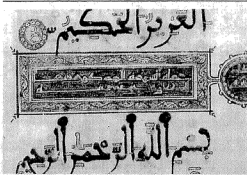 العزيز الحكيم
بسم الله الرحمن الرحيم